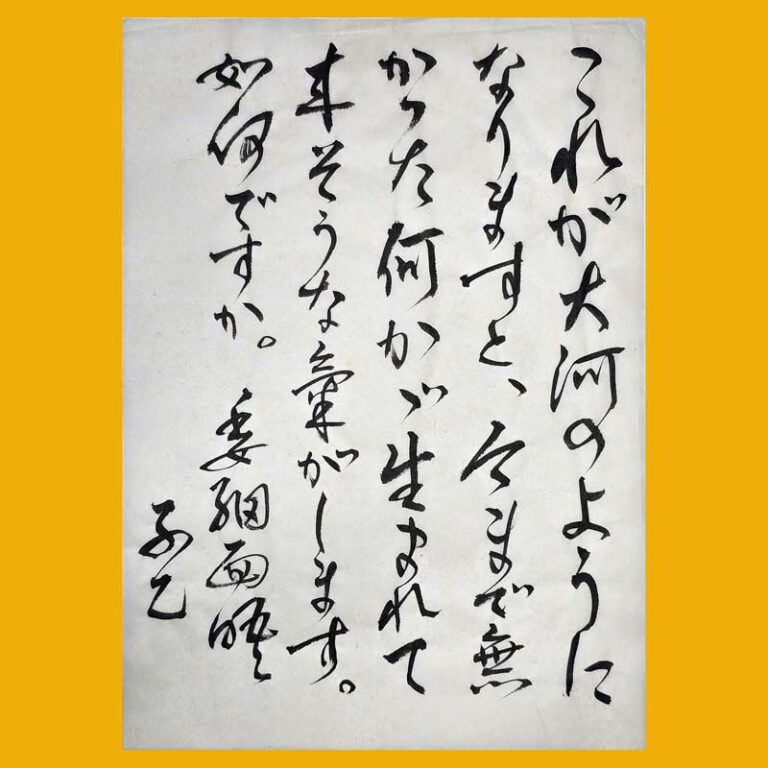 これが大河のように
なりますと、今まで無
かった何かが生まれて
来そうな氣がします。
如何ですか。 委細面晤
不乙